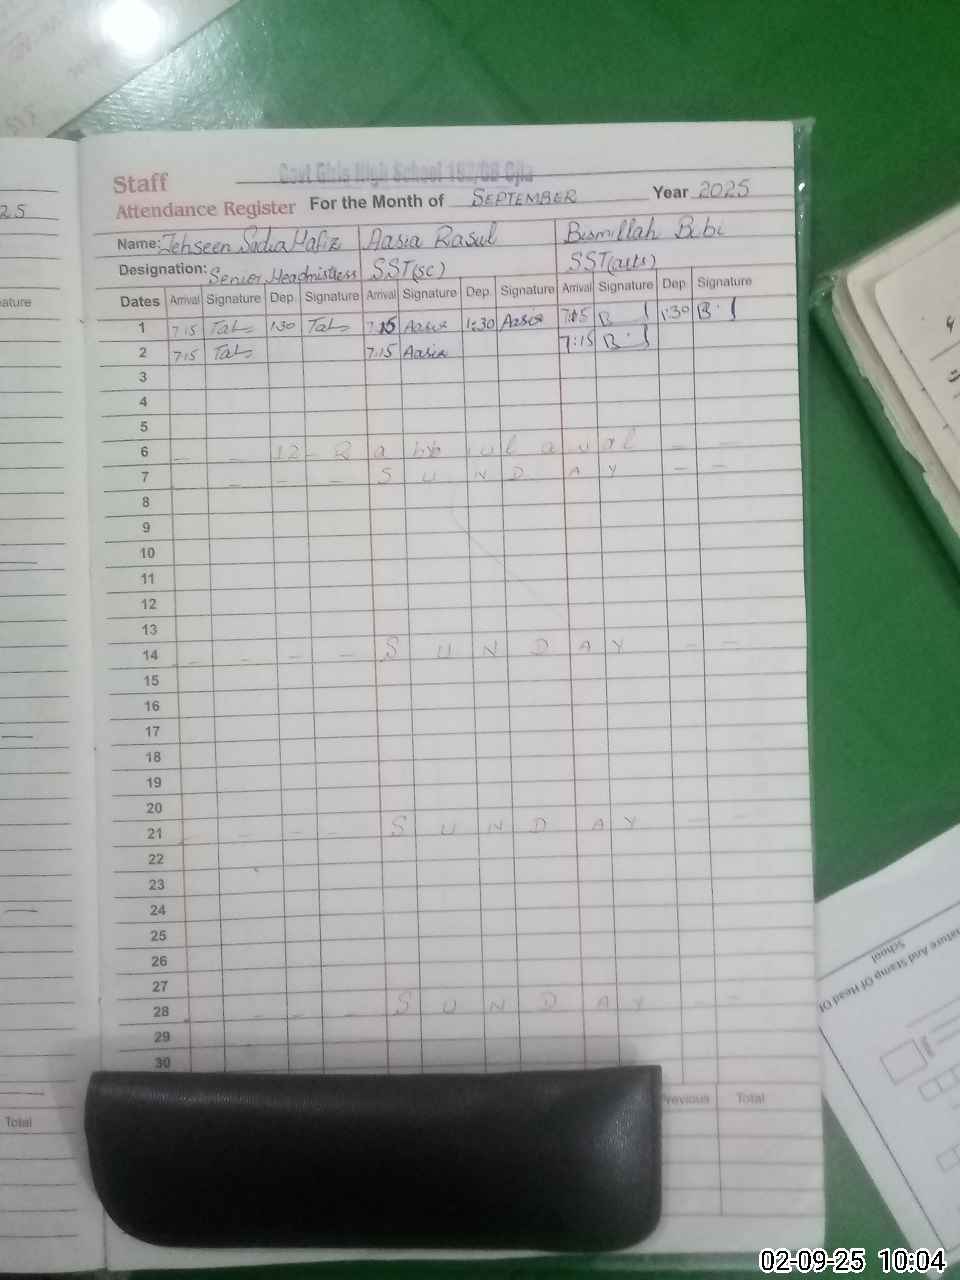 Staff
Govt Girls High School
Attendance Register For the Month of SEPTEMBER Year 2025
Name: Tehseen Sadia Hafiz Aasia Rasul Bismillah Bibi
Designation: Senior Headmistress SST(sc) SST(arts)
Dates Arrival Signature Dep. Signature Arrival Signature Dep. Signature Arrival Signature Dep. Signature
1 7:15 1:30 7:15 Aasia 1:30 Aasia 7:15 1:30
2 7:15 7:15 Aasia 7:15
3
4
5
6 - - 12 - R a bb ul a w al - -
7 - - - S U N D A Y - -
8
9
10
11
12
13
14 - - - - S U N D A Y - -
15
16
17
18
19
20
21 - - - S U N D A Y - -
22
23
24
25
26
27
28 - - - S U N D A Y - -
29
30
Previous Total
25
ature
Total
ature And Stamp Of Head Of
School
02-09-25 10:04